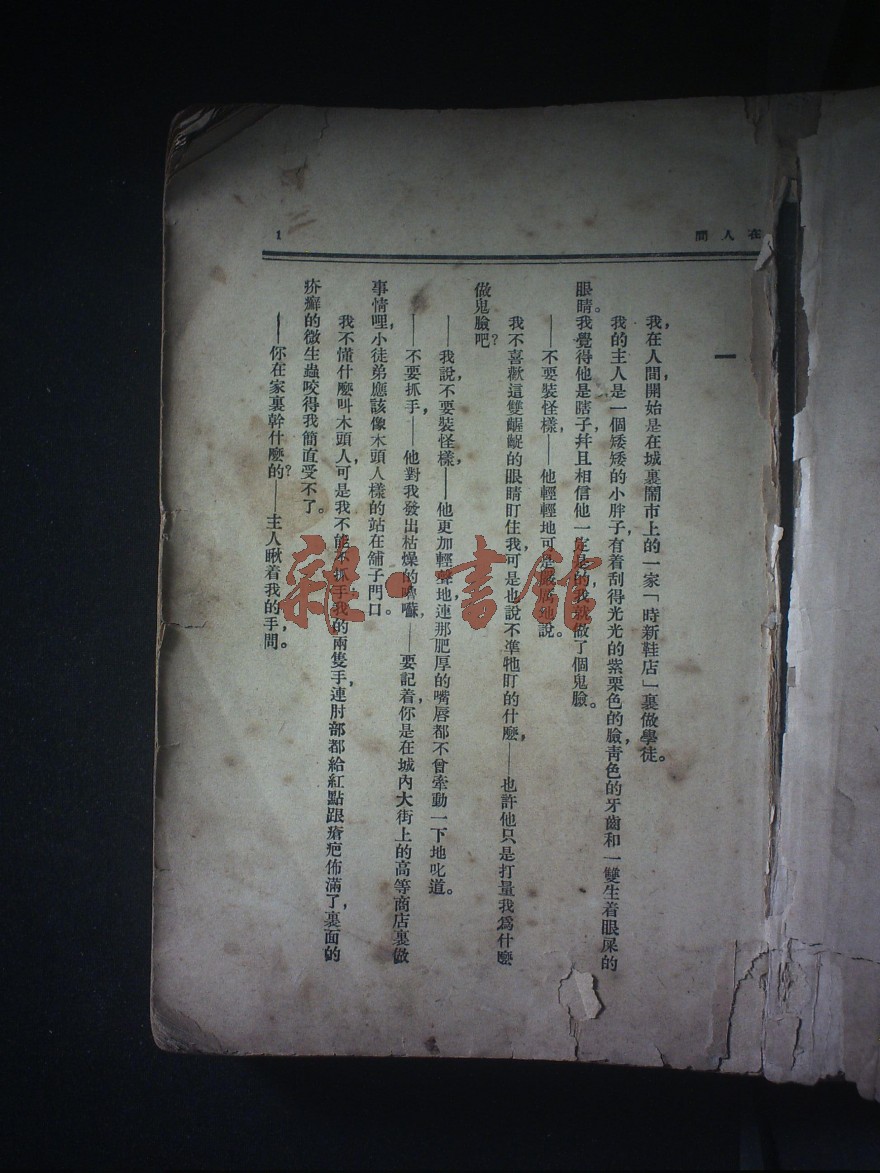 在人間
1
一
我，在人間，開始是在城裏鬧市上的一家「時新鞋店」裏做學徒。
我的主人是一個矮矮的小胖子，有着刮得光光的紫栗色的臉，靑色的牙齒和一雙生着眼屎的
眼睛。我覺得他是瞎子，幷且相信他一定是的，我就做了個鬼臉。
——不要裝怪樣，——他輕輕地可是嚴厲地說。
我不喜歡這雙齷齪的眼睛盯住我，可是也說不準牠盯的什麼，——也許他只是打量我爲什麼
做鬼臉吧？
——我說，不要裝怪樣，——他更加輕聲地，連那肥厚的嘴唇都不曾牽動一下地叱道。
——不要抓手，——他對我發出枯燥的嚕囌，——要記着，你是在城內大街上的高等商店裏做
事情哩，小徒弟應該像木頭人樣的站在舖子門口。
我不懂什麼叫木頭人，可是我不能不抓手，我的兩隻手連肘部都給紅點跟瘡疤佈滿了，裏面的
疥癬的微生蟲咬得我簡直受不了。
——你在家裏幹什麼的？——主人瞅着我的手，問。
雜·書館